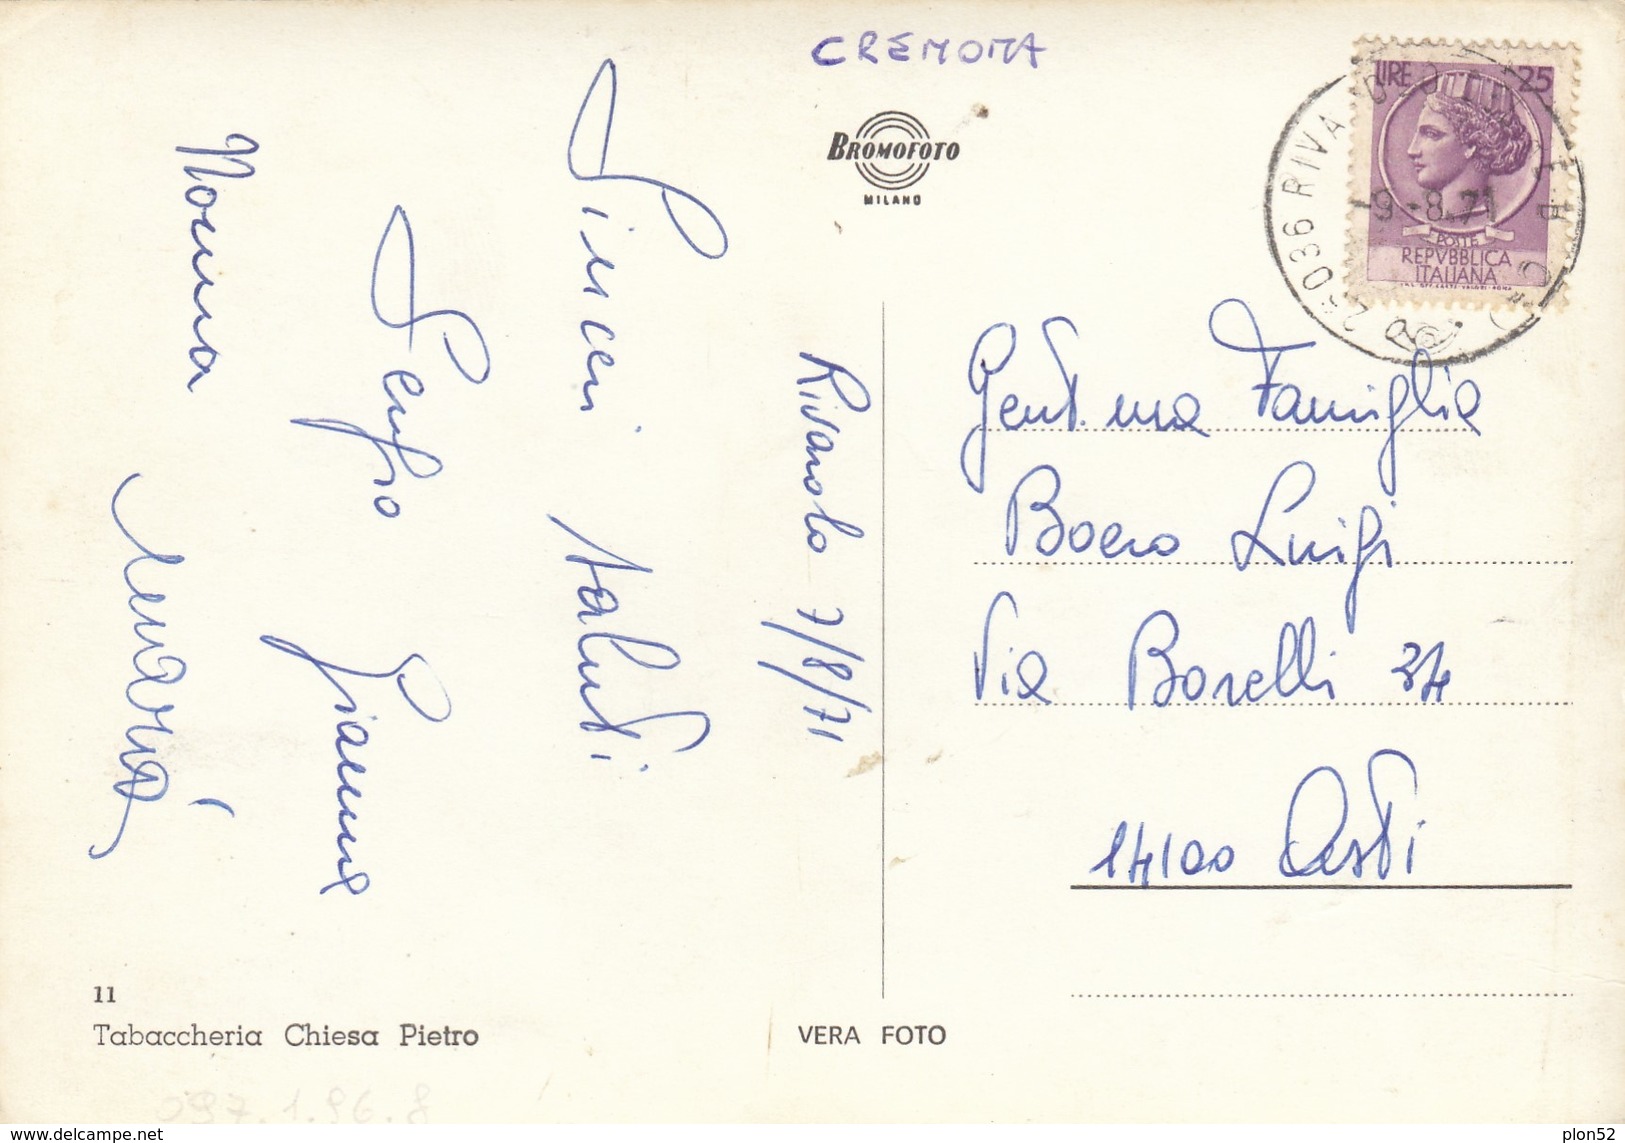 CREMONA
BROMOFOTO
MILANO
LIRE 25
POSTE
REPVBBLICA
ITALIANA
26036 RIVAROLO DEL RE
9-8.71
Rivarolo 7/8/71
Sinceri saluti
Gianna
Nonna
Gent.ma Famiglia
Boero Luigi
Via Borelli 34
14100 Asti
11
Tabaccheria Chiesa Pietro
VERA FOTO
097.1.96.8
www.delcampe.net
plon52